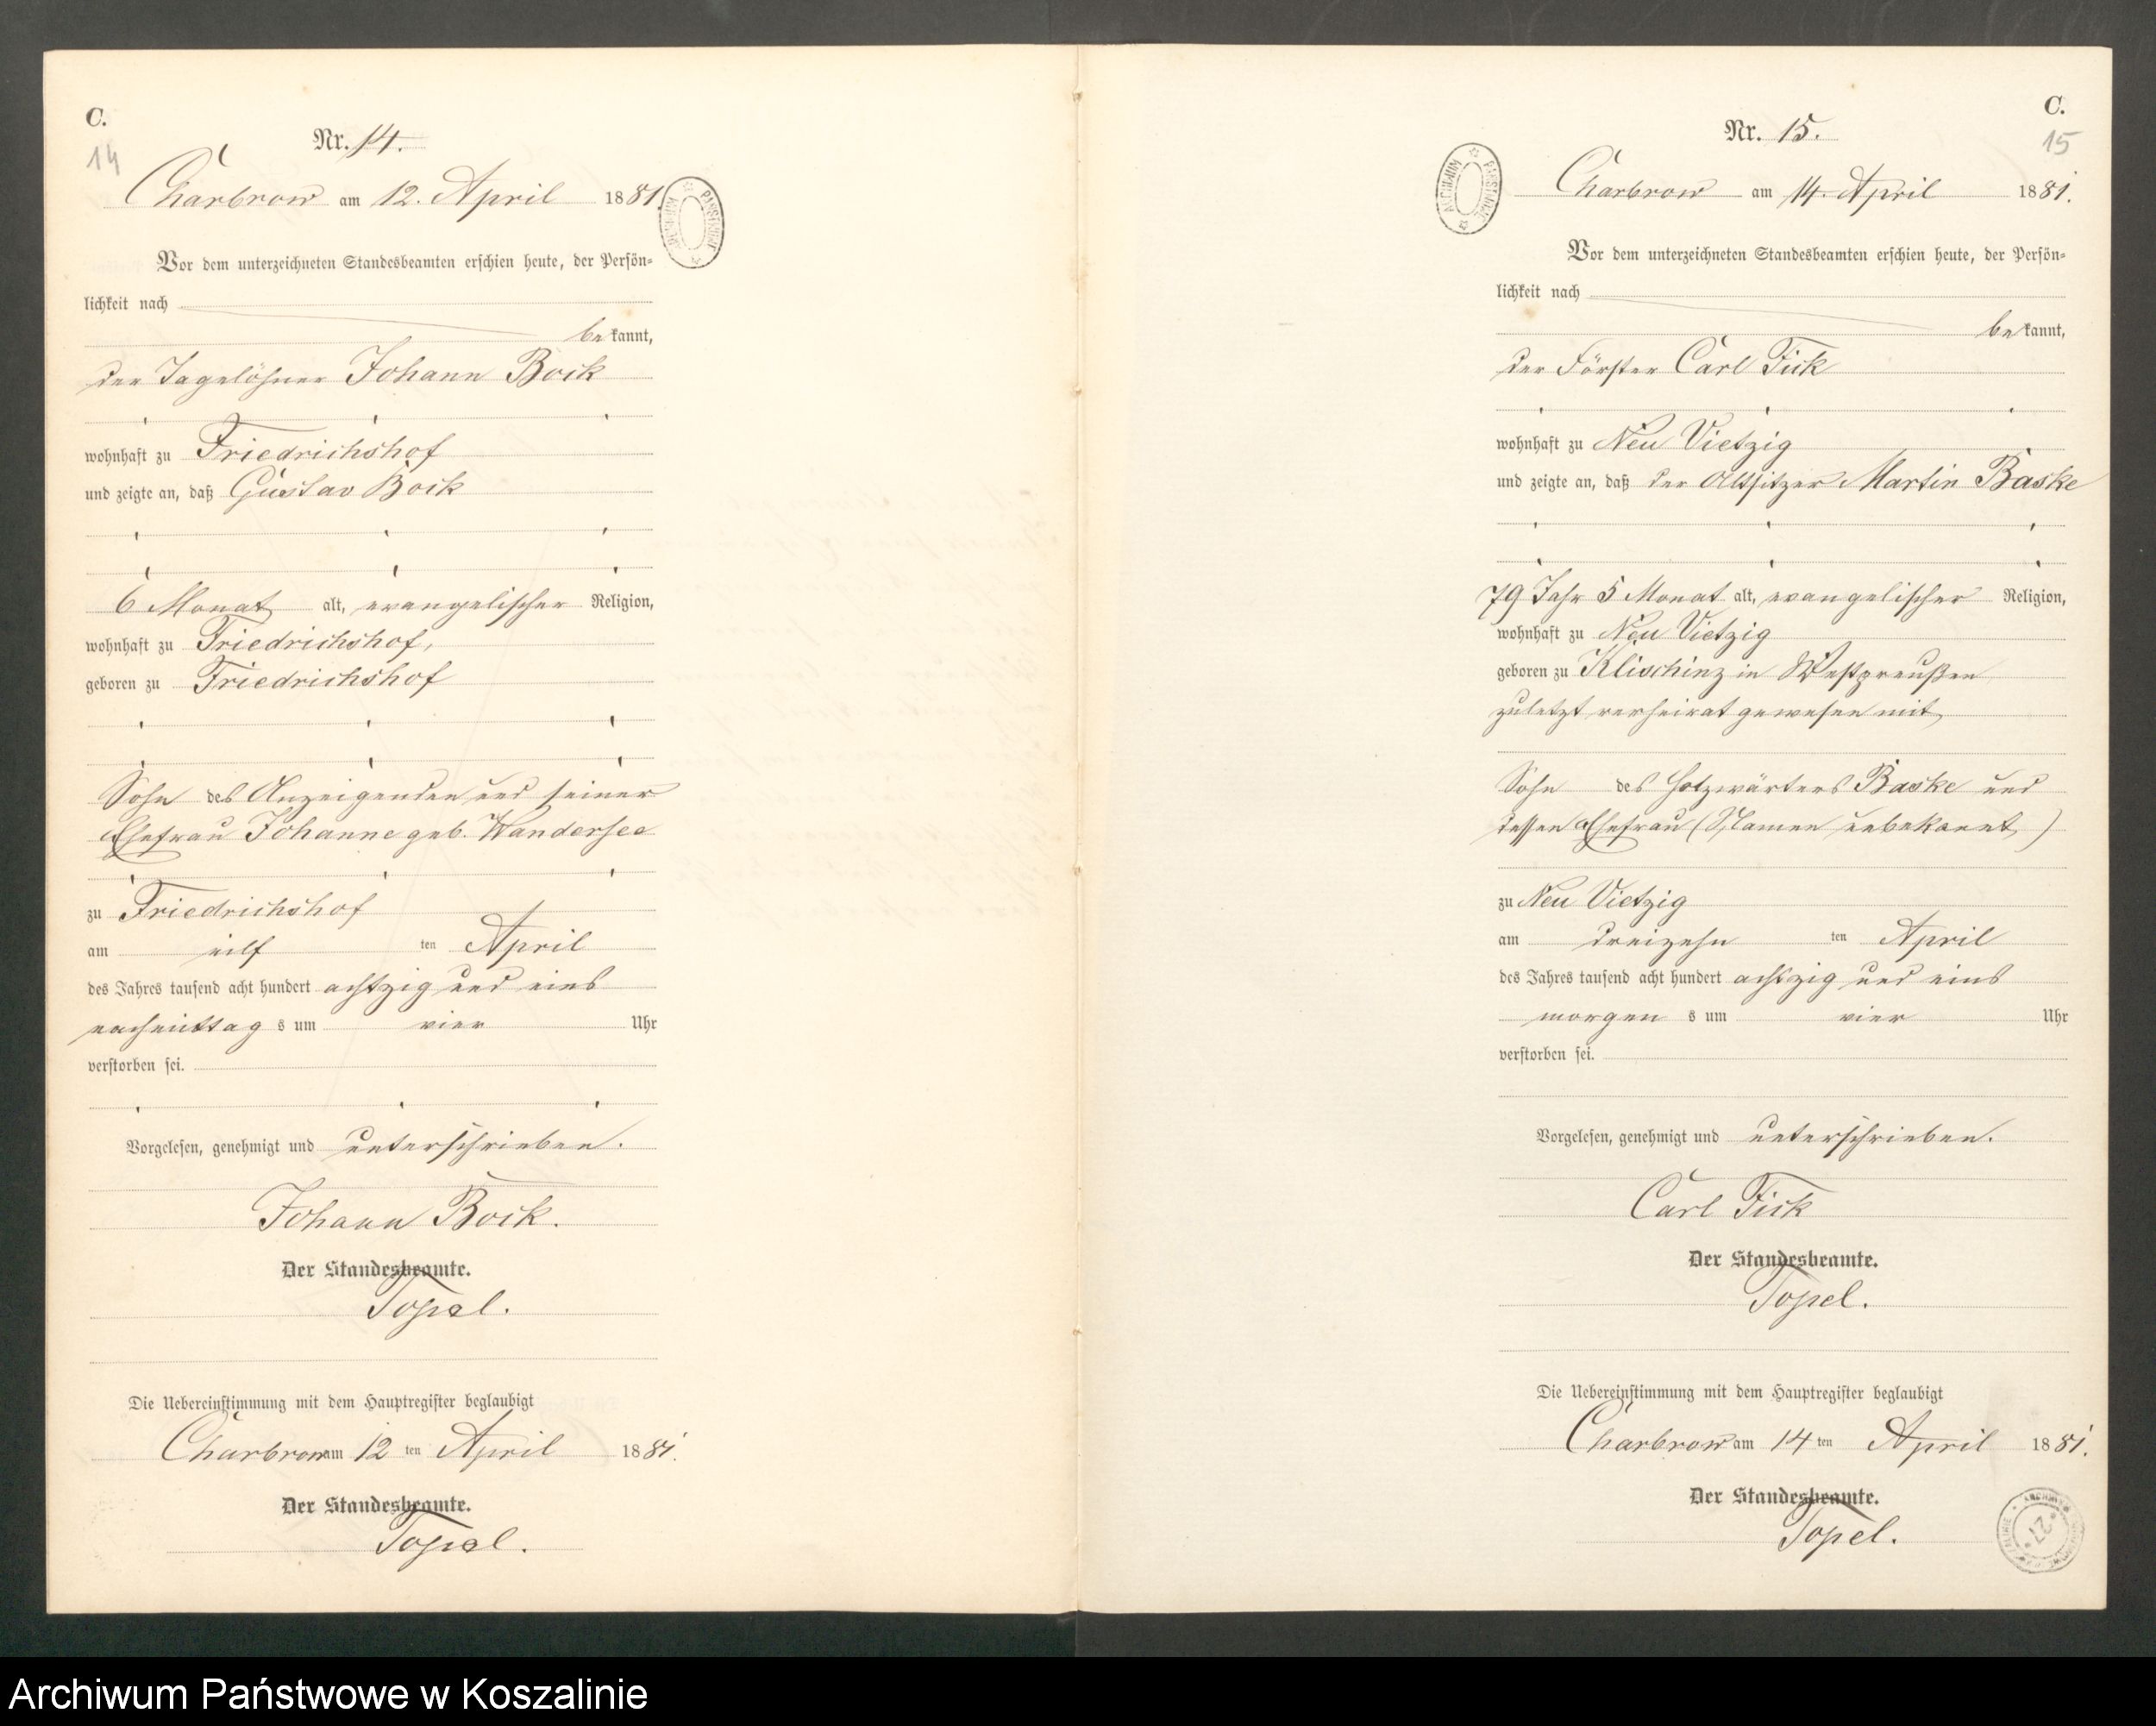 C.
14
Nr. 14.
Charbrow am 12. April 1881.
Vor dem unterzeichneten Standesbeamten erschien heute, der Persön-
lichkeit nach
bekannt,
der Tagelöhner Johann Bock
wohnhaft zu Friedrichshof
und zeigte an, daß Gustav Bock
6 Monat alt, evangelischer Religion,
wohnhaft zu Friedrichshof,
geboren zu Friedrichshof
Sohn des Anzeigenden und seiner
Ehefrau Johanne geb. Wandersee
zu Friedrichshof
am eilf ten April
des Jahres tausend acht hundert achtzig und eins
nachmittag s um vier Uhr
verstorben sei.
Vorgelesen, genehmigt und unterschrieben.
Johann Bock.
Der Standesbeamte.
Topel.
Die Uebereinstimmung mit dem Hauptregister beglaubigt
Charbrow am 12 ten April 1881.
Der Standesbeamte.
Topel.
C.
15
Nr. 15.
Charbrow am 14. April 1881.
Vor dem unterzeichneten Standesbeamten erschien heute, der Persön-
lichkeit nach
bekannt,
der Förster Carl Fick
wohnhaft zu Neu Vietzig
und zeigte an, daß der Altsitzer Martin Baske
79 Jahr 5 Monat alt, evangelischer Religion,
wohnhaft zu Neu Vietzig
geboren zu Klischinz in Westpreußen
zuletzt verheirat gewesen mit
Sohn des Holzwärters Baske und
dessen Ehefrau (Namen unbekannt)
zu Neu Vietzig
am dreizehn ten April
des Jahres tausend acht hundert achtzig und eins
morgen s um vier Uhr
verstorben sei.
Vorgelesen, genehmigt und unterschrieben.
Carl Fick
Der Standesbeamte.
Topel.
Die Uebereinstimmung mit dem Hauptregister beglaubigt
Charbrow am 14 ten April 1881.
Der Standesbeamte.
Topel.
Archiwum Państwowe w Koszalinie